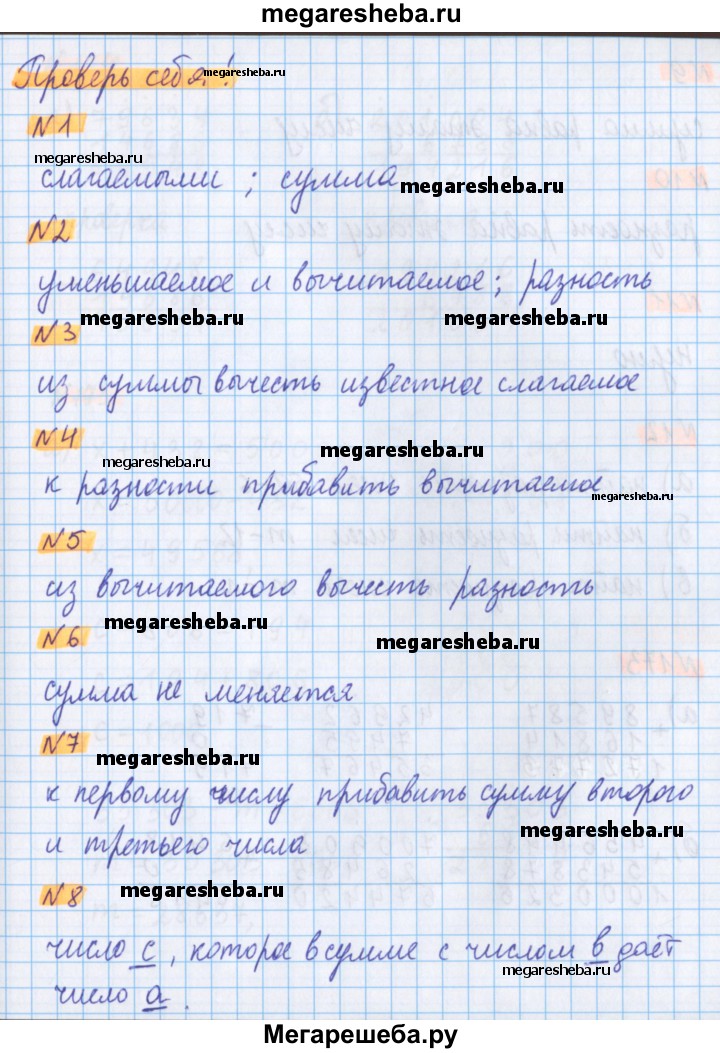 megaresheba.ru
Проверь себя! megaresheba.ru
№1
megaresheba.ru
слагаемыми; сумма megaresheba.ru
№2
уменьшаемое и вычитаемое; разность
megaresheba.ru megaresheba.ru
№3
из суммы вычесть известное слагаемое
№4 megaresheba.ru
megaresheba.ru
к разности прибавить вычитаемое megaresheba.ru
№5
из вычитаемого вычесть разность
megaresheba.ru
№6 megaresheba.ru
сумма не меняется
№7 megaresheba.ru
к первому числу прибавить сумму второго
megaresheba.ru
и третьего числа
№8 megaresheba.ru
число с, которое в сумме с числом в даёт
megaresheba.ru
число а.
Мегарешеба.ру